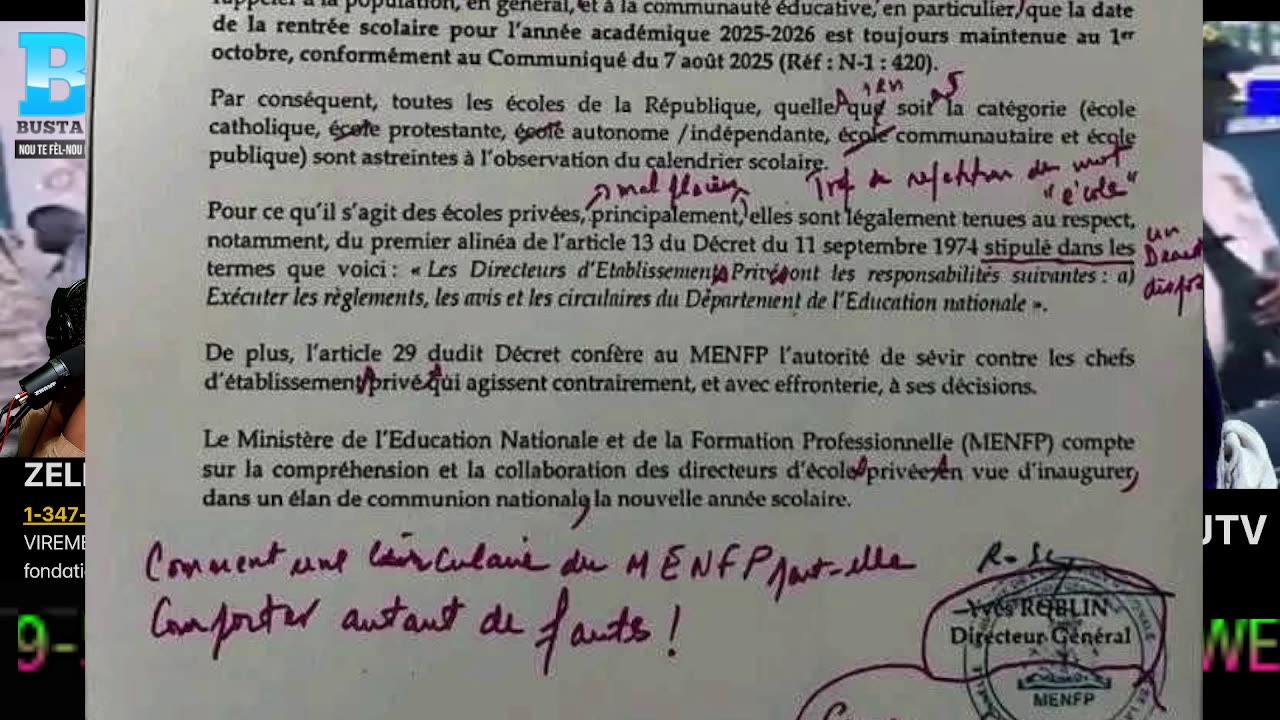 rappeler à la population, en général, et à la communauté éducative, en particulier, que la date
de la rentrée scolaire pour l'année académique 2025-2026 est toujours maintenue au 1er
octobre, conformément au Communiqué du 7 août 2025 (Réf : N-1 : 420).
Par conséquent, toutes les écoles de la République, quelle que soit la catégorie (école
catholique, école protestante, école autonome /indépendante, école communautaire et école
publique) sont astreintes à l'observation du calendrier scolaire.
mal placées
Trop de répétition du mot
"école"
Pour ce qu'il s'agit des écoles privées, principalement, elles sont légalement tenues au respect,
notamment, du premier alinéa de l'article 13 du Décret du 11 septembre 1974 stipulé dans les
termes que voici : « Les Directeurs d'Etablissement Privé ont les responsabilités suivantes : a)
Exécuter les règlements, les avis et les circulaires du Département de l'Education nationale ».
un
De plus, l'article 29 dudit Décret confère au MENFP l'autorité de sévir contre les chefs
d'établissement privé qui agissent contrairement, et avec effronterie, à ses décisions.
Le Ministère de l'Education Nationale et de la Formation Professionnelle (MENFP) compte
sur la compréhension et la collaboration des directeurs d'école privée en vue d'inaugurer,
dans un élan de communion nationale, la nouvelle année scolaire.
Comment une circulaire du MENFP peut-elle
Comporter autant de fautes !
Yves ROBLIN
Directeur Général
MENFP
B
BUSTA
NOU TE FÈL-NOU
ZELL
1-347-
VIREME
fondati
9-
UTV
WE